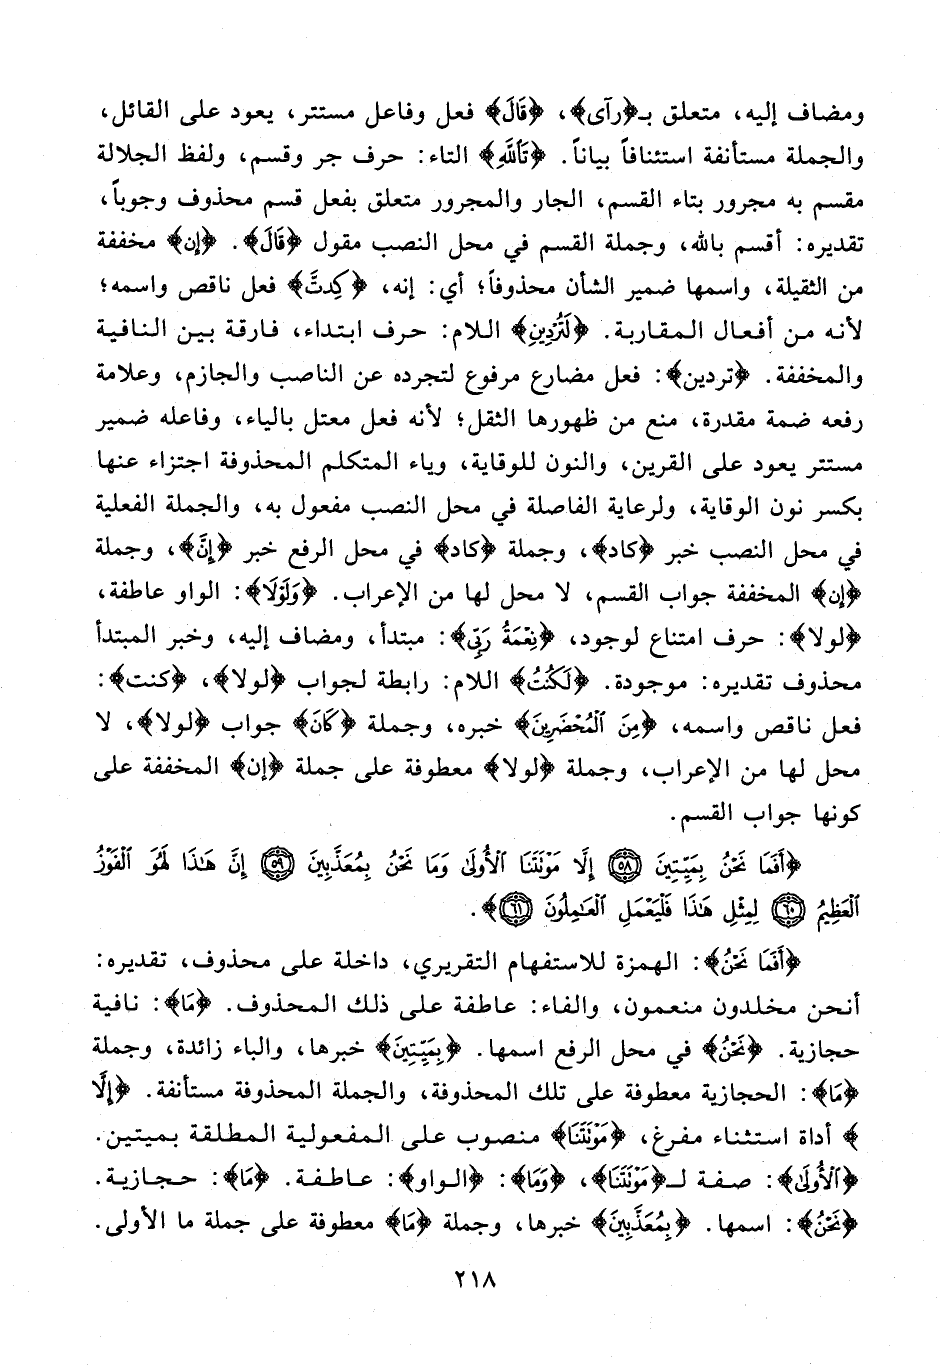 ومضاف إليه، متعلق بـ﴿رآى﴾، ﴿قَالَ﴾ فعل وفاعل مستتر، يعود على القائل،
والجملة مستأنفة استئنافاً بيانياً. ﴿تَاللَّهِ﴾ التاء: حرف جر وقسم، ولفظ الجلالة
مقسم به مجرور بتاء القسم، الجار والمجرور متعلق بفعل قسم محذوف وجوباً،
تقديره: أقسم بالله، وجملة القسم في محل النصب مقول ﴿قَالَ﴾. ﴿إن﴾ مخففة
من الثقيلة، واسمها ضمير الشأن محذوفاً؛ أي: إنه، ﴿كِدتَّ﴾ فعل ناقص واسمه؛
لأنه من أفعال المقاربة. ﴿لَتُرْدِينِ﴾ اللام: حرف ابتداء، فارقة بين النافية
والمخففة. ﴿تردين﴾: فعل مضارع مرفوع لتجرده عن الناصب والجازم، وعلامة
رفعه ضمة مقدرة، منع من ظهورها الثقل؛ لأنه فعل معتل بالياء، وفاعله ضمير
مستتر يعود على القرين، والنون للوقاية، وياء المتكلم المحذوفة اجتزاء عنها
بكسر نون الوقاية، ولرعاية الفاصلة في محل النصب مفعول به، والجملة الفعلية
في محل النصب خبر ﴿كاد﴾، وجملة ﴿كاد﴾ في محل الرفع خبر ﴿إِنَّ﴾، وجملة
﴿إن﴾ المخففة جواب القسم، لا محل لها من الإعراب. ﴿وَلَوْلَا﴾: الواو عاطفة،
﴿لولا﴾: حرف امتناع لوجود، ﴿نِعْمَةُ رَبِّي﴾: مبتدأ، ومضاف إليه، وخبر المبتدأ
محذوف تقديره: موجودة. ﴿لَكُنتُ﴾ اللام: رابطة لجواب ﴿لولا﴾، ﴿كنت﴾:
فعل ناقص واسمه، ﴿مِنَ الْمُحْضَرِينَ﴾ خبره، وجملة ﴿كَانَ﴾ جواب ﴿لولا﴾، لا
محل لها من الإعراب، وجملة ﴿لولا﴾ معطوفة على جملة ﴿إن﴾ المخففة على
كونها جواب القسم.
﴿أَفَمَا نَحْنُ بِمَيِّتِينَ ٥٨ إِلَّا مَوْتَتَنَا الْأُولَىٰ وَمَا نَحْنُ بِمُعَذَّبِينَ ٥٩ إِنَّ هَٰذَا لَهُوَ الْفَوْزُ
الْعَظِيمُ ٦٠ لِمِثْلِ هَٰذَا فَلْيَعْمَلِ الْعَامِلُونَ ٦١﴾.
﴿أَفَمَا نَحْنُ﴾: الهمزة للاستفهام التقريري، داخلة على محذوف، تقديره:
أنحن مخلدون منعمون، والفاء: عاطفة على ذلك المحذوف. ﴿مَا﴾: نافية
حجازية. ﴿نَحْنُ﴾ في محل الرفع اسمها. ﴿بِمَيِّتِينَ﴾ خبرها، والباء زائدة، وجملة
﴿مَا﴾: الحجازية معطوفة على تلك المحذوفة، والجملة المحذوفة مستأنفة. ﴿إِلَّا
﴾ أداة استثناء مفرغ، ﴿مَوْتَتَنَا﴾ منصوب على المفعولية المطلقة بميتين.
﴿الْأُولَىٰ﴾: صفة لـ﴿مَوْتَتَنَا﴾، ﴿وَمَا﴾: ﴿الواو﴾: عاطفة. ﴿مَا﴾: حجازية.
﴿نَحْنُ﴾: اسمها. ﴿بِمُعَذَّبِينَ﴾ خبرها، وجملة ﴿مَا﴾ معطوفة على جملة ما الأولى.
٢١٨